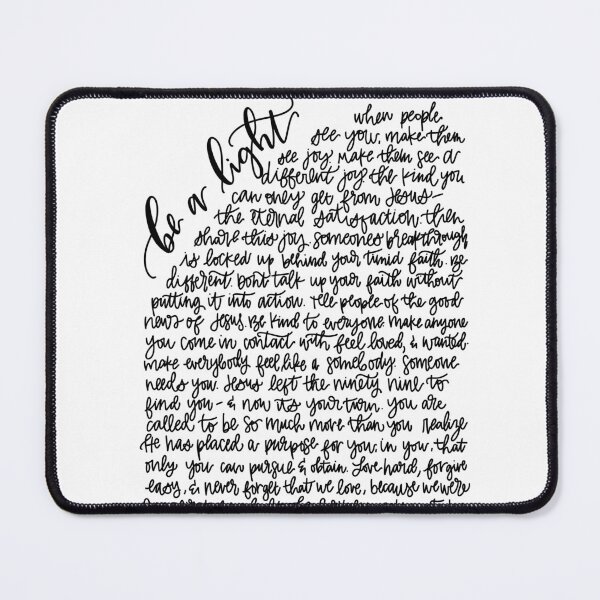 be a light
when people
see you, make them
see joy. Make them see a
different joy the kind you
can only get from Jesus-
the eternal satisfaction. then
share this joy. someones breakthrough
is locked up behind your timid faith. Be
different. Dont talk up your faith without
putting it into action. Tell people of the good
news of Jesus. Be kind to everyone. make anyone
you come in contact with feel loved, & wanted.
make everybody feel like a somebody. someone
needs you. Jesus left the ninety nine to
find you - & now its your turn. you are
called to be so much more than you realize
He has placed a purpose for you, in you, that
only you can pursue & obtain. Love hard, forgive
easy, & never forget that we love, because we were